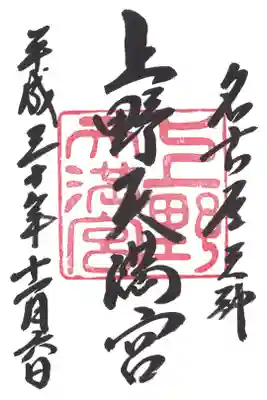 名古屋
上野天満宮
平成三十年十一月六日
上野天満宮